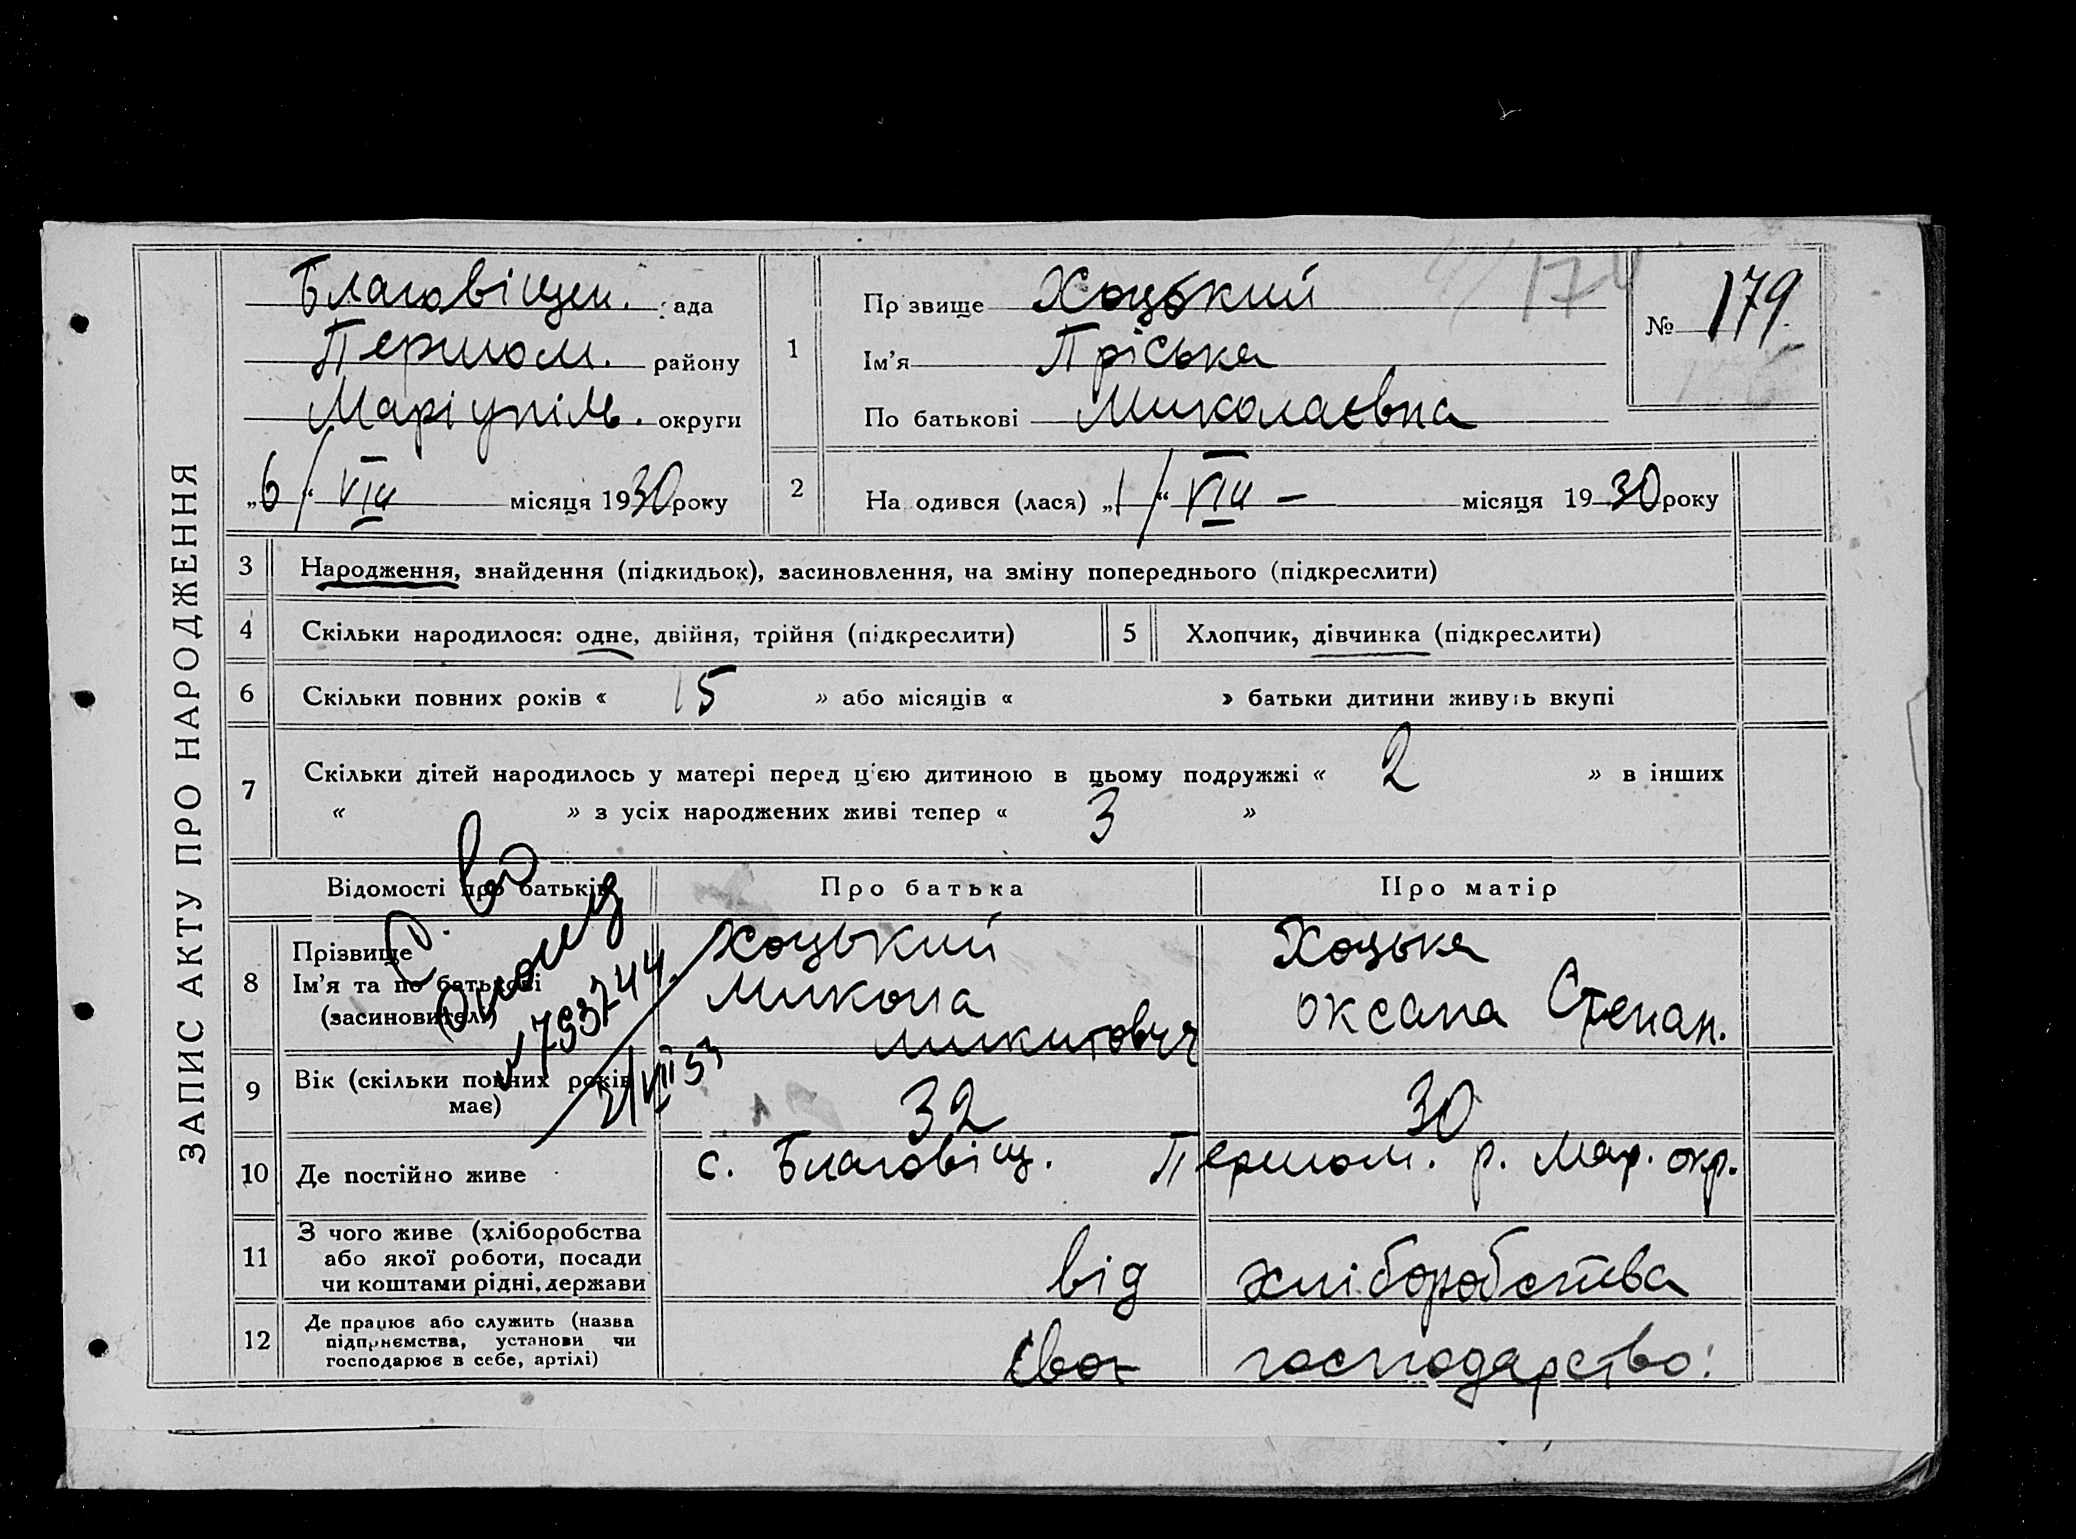 ЗАПИС АКТУ ПРО НАРОДЖЕННЯ
Благовіщен. рада
Першом. району
Маріупіль. округи
„6“ VIII місяця 1930 року
1
Прізвище Хоцький
Ім’я Пріська
По батькові Миколаєвна
№ 179
174
2
Народився (лася) „1“ VIII – місяця 1930 року
3 Народження, знайдення (підкидьок), засиновлення, на зміну попереднього (підкреслити)
4 Скільки народилося: одне, двійня, трійня (підкреслити)
5 Хлопчик, дівчинка (підкреслити)
6 Скільки повних років « 15 » або місяців « » батьки дитини живуть вкупі
7 Скільки дітей народилось у матері перед ц’єю дитиною в цьому подружжі « 2 » в інших
« » з усіх народжених живі тепер « 3 »
Відомості про батьків
Про батька
Про матір
8
Прізвище
Ім’я та по батькові
(засиновителі)
Хоцький
Микола
Микитович
Хоцька
Оксана Степан.
С. во
793744
21/VII 53
9 Вік (скільки повних років
має)
32
30
10 Де постійно живе
с. Благовіщ. Першом. р. Мар. окр.
11 З чого живе (хліборобства
або якої роботи, посади
чи коштами рідні, держави
від хліборобства
12 Де працює або служить (назва
підприємства, установи чи
господарює в себе, артілі)
своє господарство